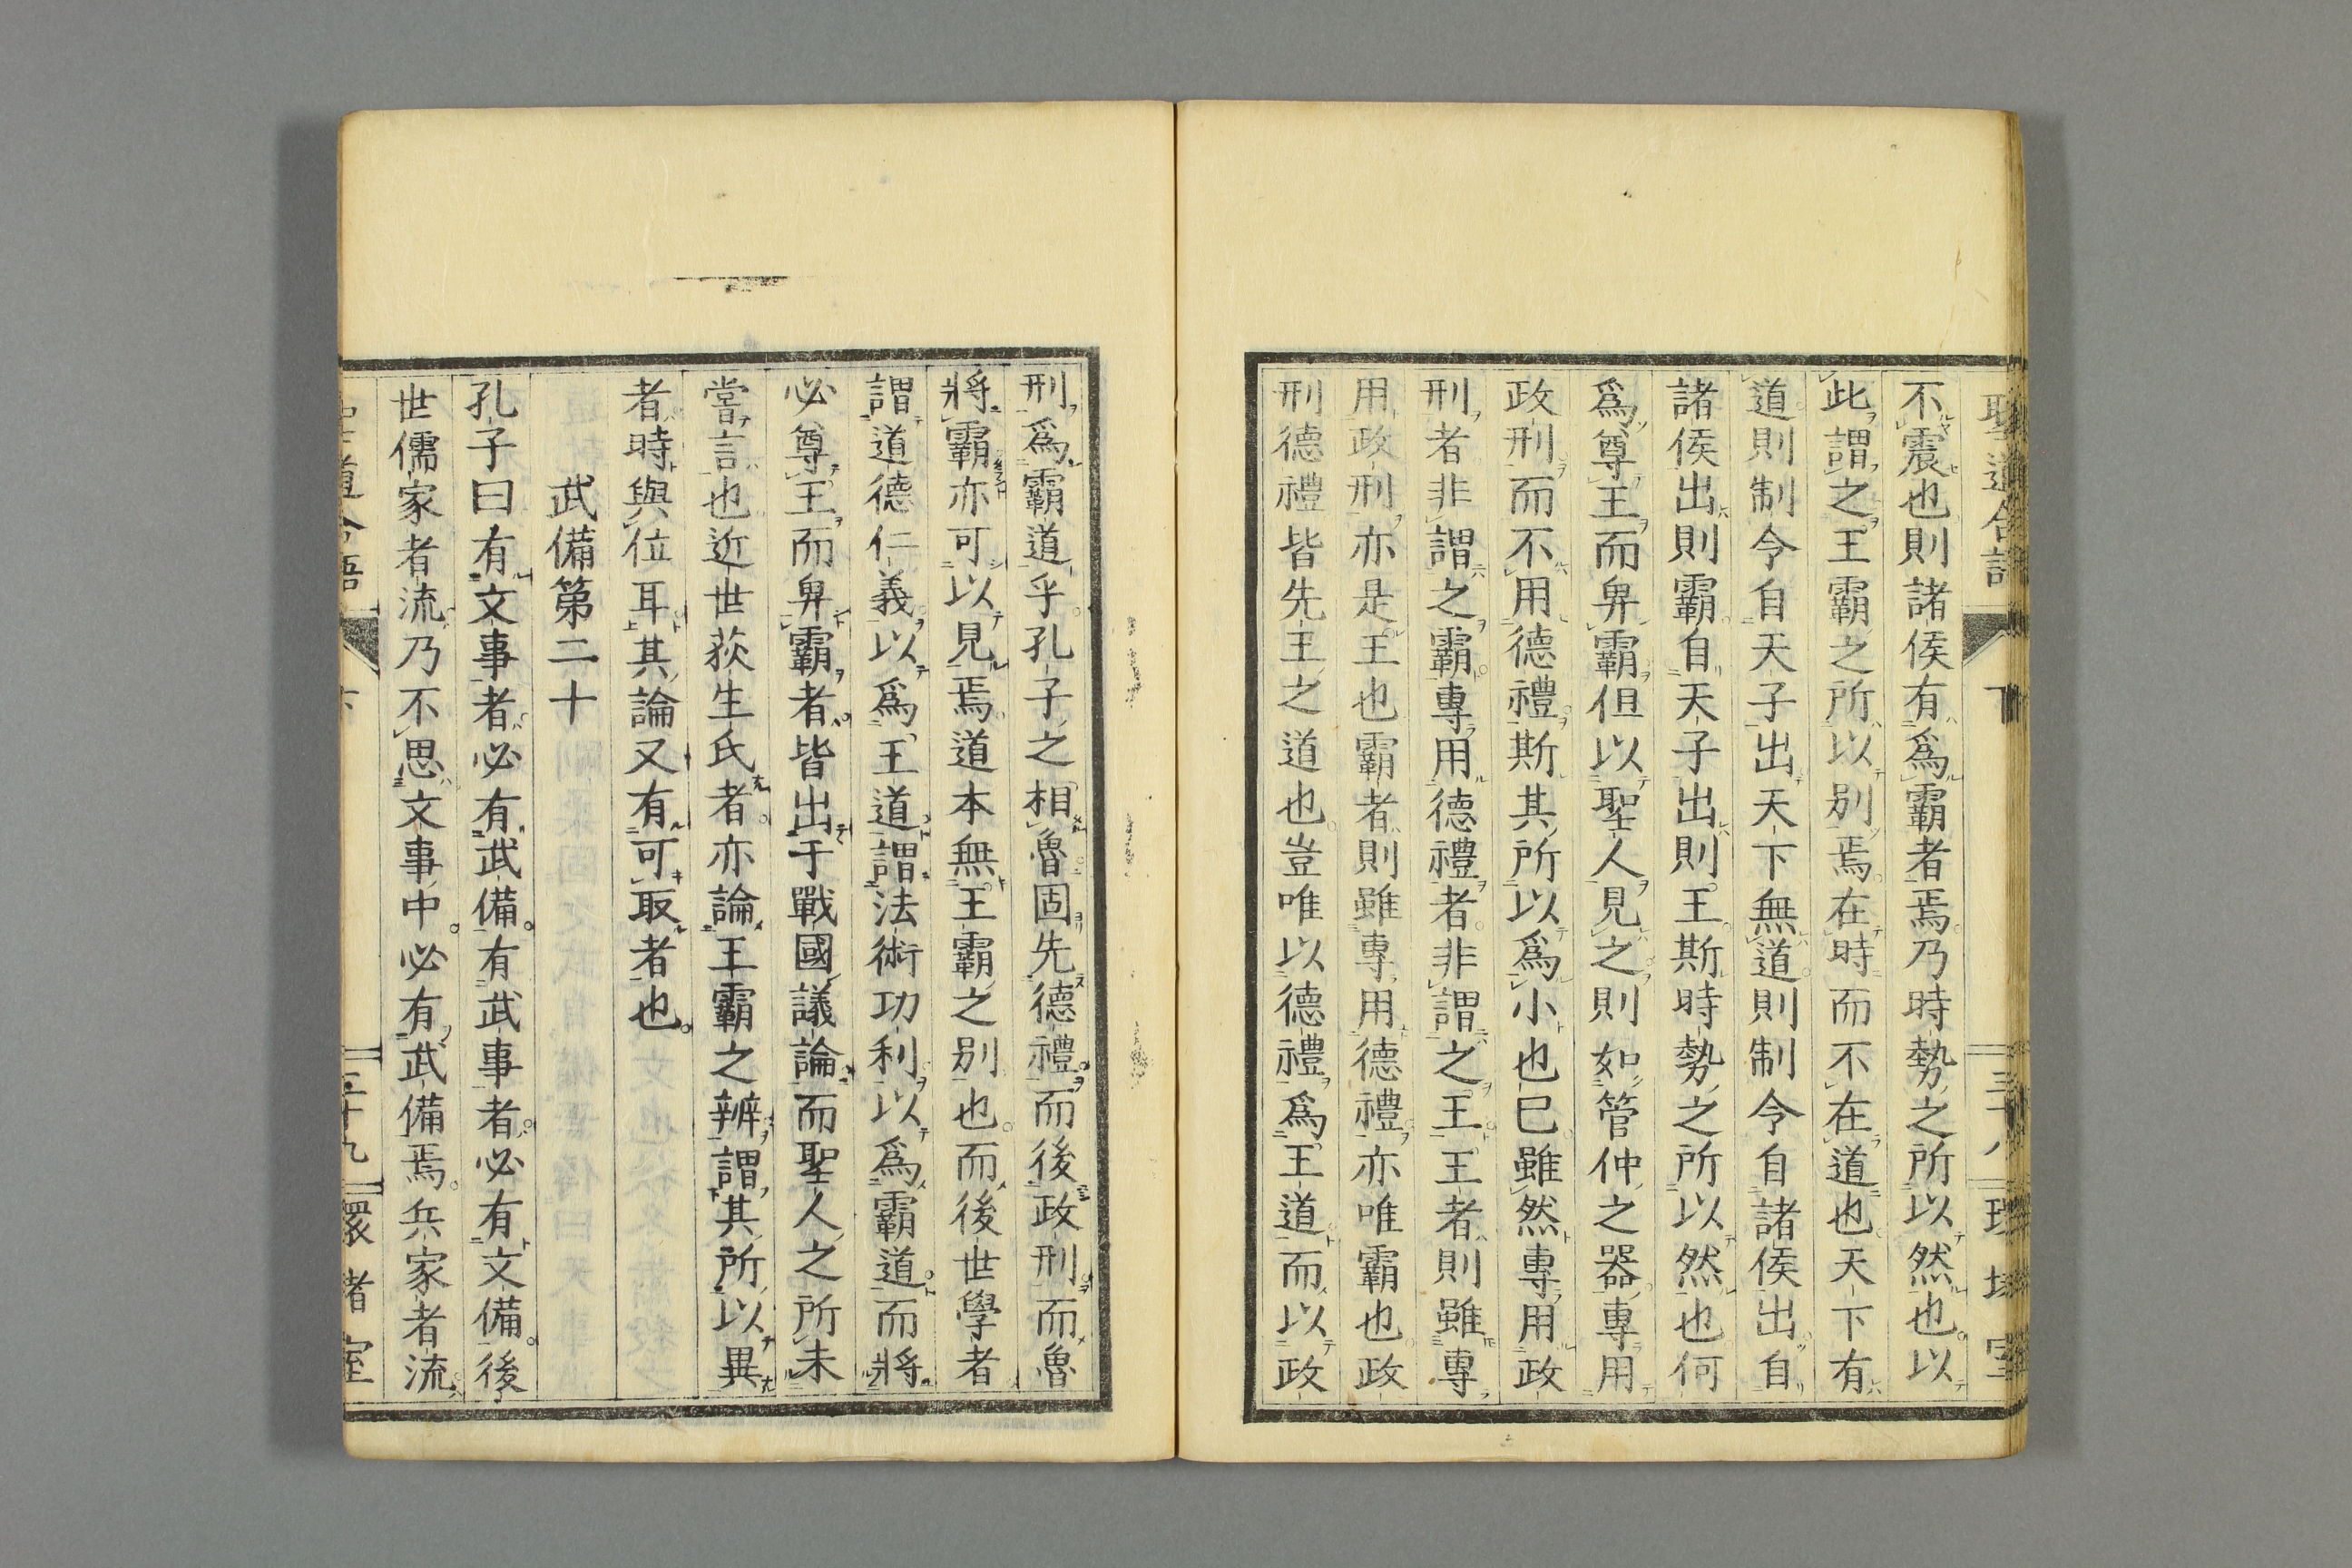 聖道合語 下 三十八 環堵室
不震也則諸侯有爲霸者焉乃時勢之所以然也以
此謂之王霸之所以別焉在時而不在道也天下有
道則制令自天子出天下無道則制令自諸侯出自
諸侯出則霸自天子出則王斯時勢之所以然也何
爲尊王而卑霸但以聖人見之則如管仲之器專用
政刑而不用德禮斯其所以爲小也已雖然專用政
刑者非謂之霸專用德禮者非謂之王王者則雖專
用政刑亦是王也霸者則雖專用德禮亦唯霸也政
刑德禮皆先王之道也豈唯以德禮爲王道而以政
刑爲霸道乎孔子之相魯固先德禮而後政刑而魯
將霸亦可以見焉道本無王霸之別也而後世學者
謂道德仁義以爲王道謂法術功利以爲霸道而將
必尊王而卑霸者皆出于戰國議論而聖人之所未
嘗言也近世荻生氏者亦論王霸之辨謂其所以異
者時與位耳其論又有可取者也
武備第二十
孔子曰有文事者必有武備有武事者必有文備後
世儒家者流乃不思文事中必有武備焉兵家者流
聖道合語 下 三十九 環堵室